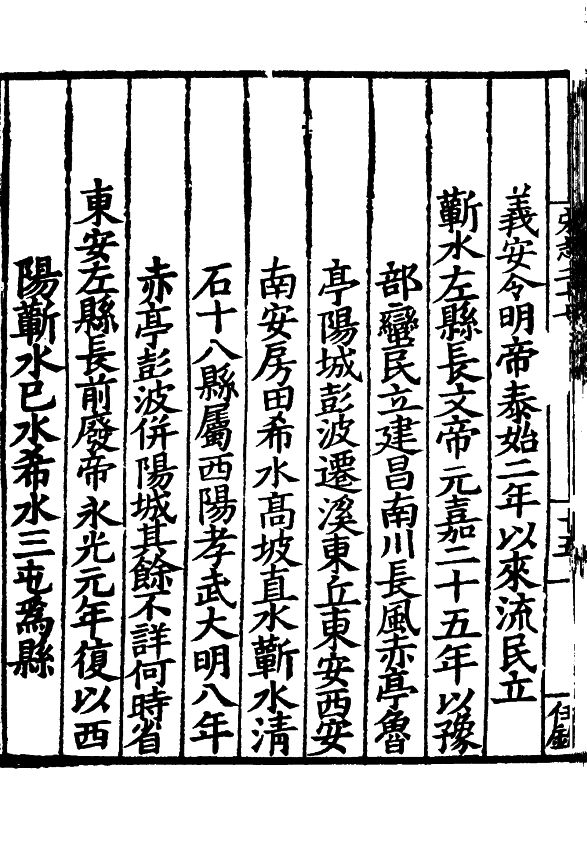 義安令明帝泰始二年以來流民立
蘄水左縣長文帝元嘉二十五年以豫
部蠻民立建昌南川長風赤亭魯
亭陽城彭波遷溪東丘東安西安
南安房田希水高坡直水蘄水清
石十八縣屬西陽孝武大明八年
赤亭彭波併陽城其餘不詳何時省
東安左縣長前廢帝永光元年復以西
陽蘄水巴水希水三屯爲縣